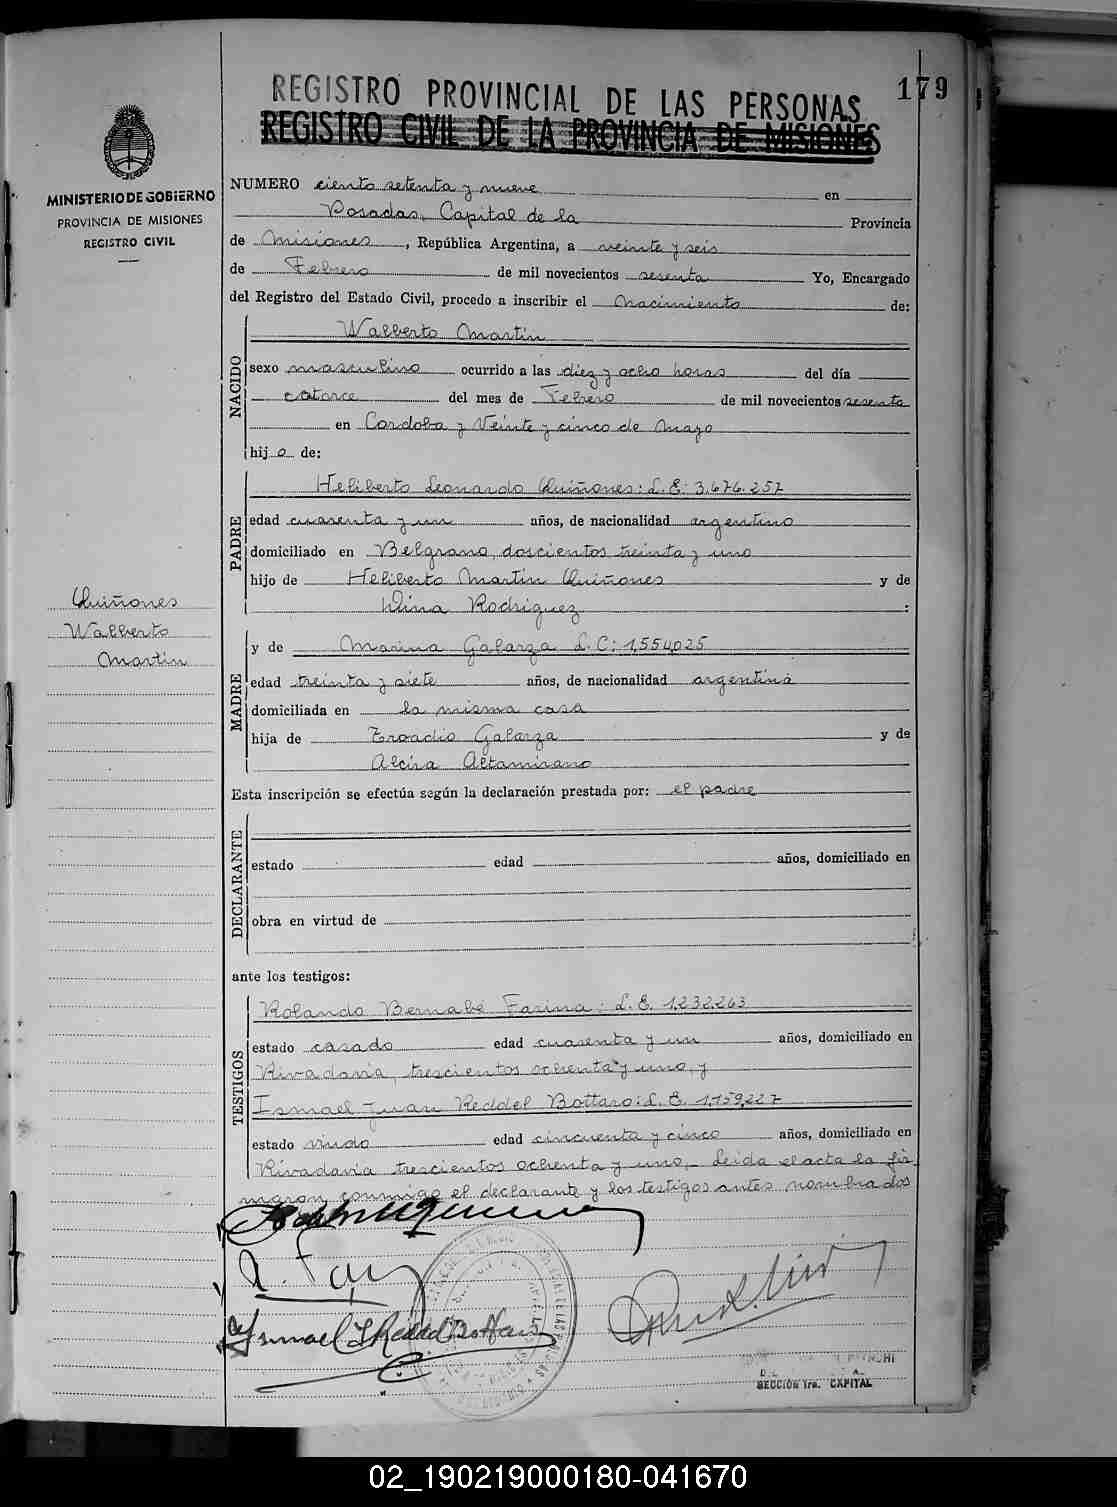 179
REGISTRO PROVINCIAL DE LAS PERSONAS
REGISTRO CIVIL DE LA PROVINCIA DE MISIONES
MINISTERIO DE GOBIERNO
PROVINCIA DE MISIONES
REGISTRO CIVIL
Quiñones
Walberto
Martin
NUMERO ciento setenta y nueve en
Posadas, Capital de la Provincia
de Misiones, República Argentina, a veinte y seis
de Febrero de mil novecientos sesenta Yo, Encargado
del Registro del Estado Civil, procedo a inscribir el Nacimiento de:
NACIDO
Walberto Martin
sexo masculino ocurrido a las diez y ocho horas del día
catorce del mes de Febrero de mil novecientos sesenta
en Cordoba y Veinte y cinco de Mayo
hijo de:
PADRE
Heliberto Leonardo Quiñones: L.E: 3.676.257
edad cuarenta y un años, de nacionalidad argentino
domiciliado en Belgrano, doscientos treinta y uno
hijo de Heliberto Martin Quiñones y de
Dina Rodriguez :
MADRE
y de Marina Galarza L.C: 1,554,025
edad treinta y siete años, de nacionalidad argentina
domiciliada en la misma casa
hija de Eroadio Galarza y de
Alcira Altamirano
Esta inscripción se efectúa según la declaración prestada por: el padre
DECLARANTE
estado edad años, domiciliado en
obra en virtud de
ante los testigos:
TESTIGOS
Rolando Bernabé Farina: L.E. 1,232,263
estado casado edad cuarenta y un años, domiciliado en
Rivadavia, trescientos ochenta y uno, y
Ismael Juan Reddel Bottaro: L.E. 1,159,227
estado viudo edad cincuenta y cinco años, domiciliado en
Rivadavia trescientos ochenta y uno,- Leida el acta la fir
maron conmigo el declarante y los testigos antes nombrados
SECCIÓN 1ra. CAPITAL
02_190219000180-041670